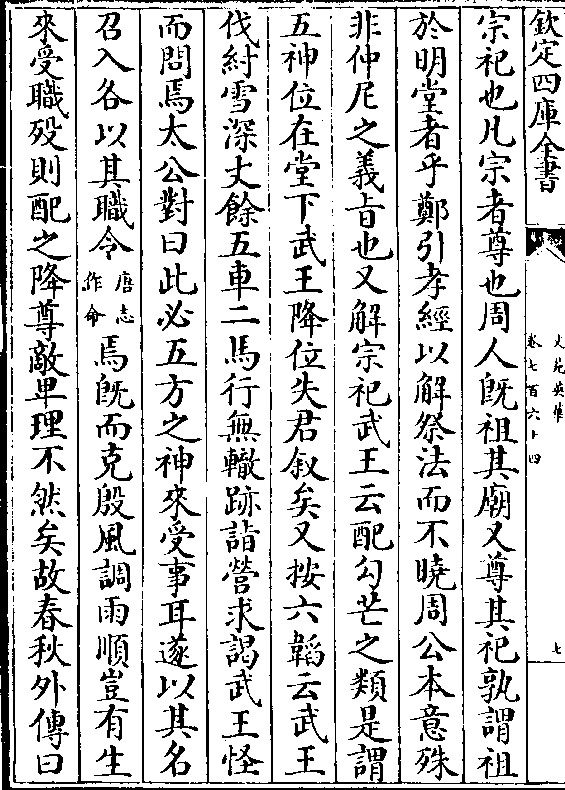 欽定四庫全書
文苑英華
卷七百六十四
七
宗祀也凡宗者尊也周人既祖其廟又尊其祀孰謂祖
於明堂者乎鄭引孝經以解祭法而不曉周公本意殊
非仲尼之義旨也又解宗祀武王云配勾芒之類是謂
五神位在堂下武王降位失君叙矣又按六韜云武王
伐紂雪深丈餘五車二馬行無轍跡詣營求謁武王怪
而問焉太公對曰此必五方之神來受事耳遂以其名
召入各以其職令唐志作命焉既而克殷風調雨順豈有生
來受職歿則配之降尊敵卑理不然矣故春秋外傳曰